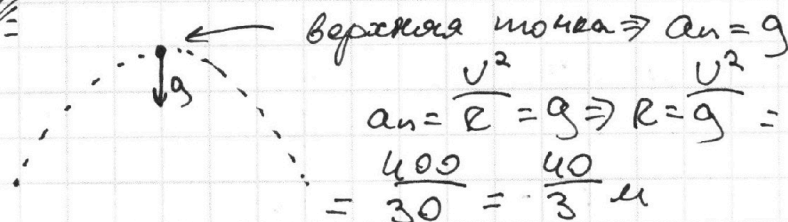 верхняя точка ⇒ aₙ = g
g
aₙ = υ²/R = g ⇒ R = υ²/g =
= 400/30 = 40/3 м